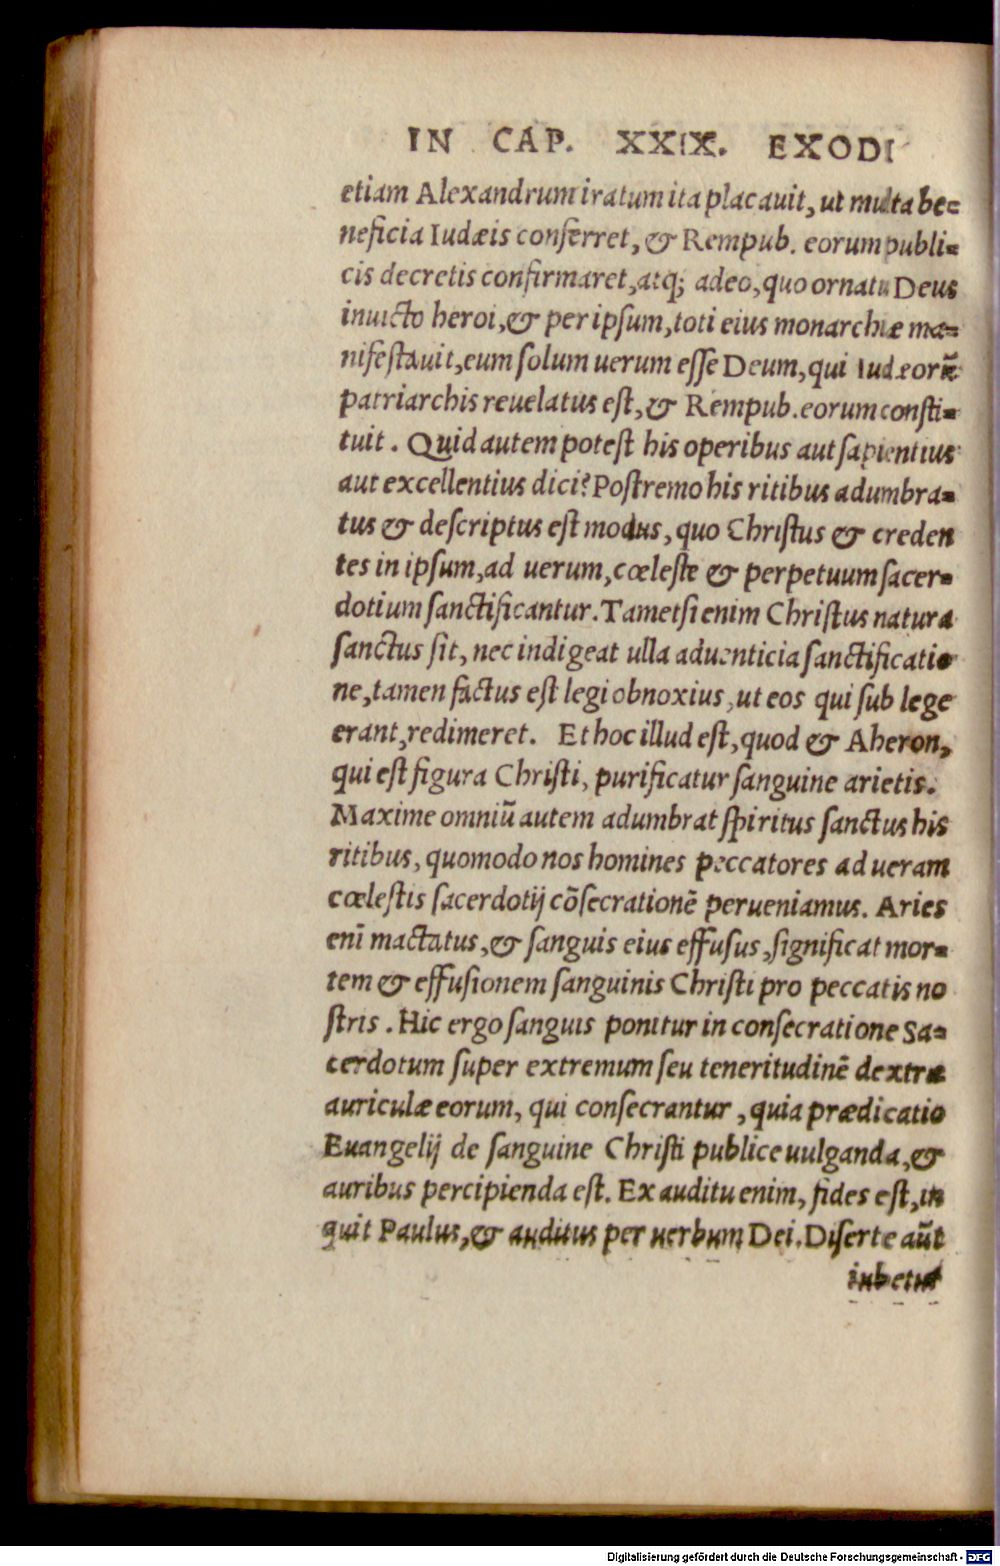 IN CAP. XXIX. EXODI
etiam Alexandrum iratum ita placauit, ut multa be=
neficia Iudæis conferret, & Rempub. eorum publi=
cis decretis confirmaret, atq; adeo, quo ornatu Deus
inuicto heroi, & per ipsum, toti eius monarchiæ ma=
nifestauit, eum solum uerum esse Deum, qui Iudæorū
patriarchis reuelatus est, & Rempub. eorum consti=
tuit. Quid autem potest his operibus aut sapientius
aut excellentius dici? Postremo his ritibus adumbra=
tus & descriptus est modus, quo Christus & creden
tes in ipsum, ad uerum, cœleste & perpetuum sacer=
dotium sanctificantur. Tametsi enim Christus natura
sanctus sit, nec indigeat ulla aduenticia sanctificatio
ne, tamen factus est legi obnoxius, ut eos qui sub lege
erant, redimeret. Et hoc illud est, quod & Aheron,
qui est figura Christi, purificatur sanguine arietis.
Maxime omniū autem adumbrat spiritus sanctus his
ritibus, quomodo nos homines peccatores ad ueram
cœlestis sacerdotij cōsecrationē perueniamus. Aries
enī mactatus, & sanguis eius effusus, significat mor=
tem & effusionem sanguinis Christi pro peccatis no
stris. Hic ergo sanguis ponitur in consecratione Sa=
cerdotum super extremum seu teneritudinē dextræ
auriculæ eorum, qui consecrantur, quia prædicatio
Euangelij de sanguine Christi publice uulganda, &
auribus percipienda est. Ex auditu enim, fides est, in
quit Paulus, & auditus per uerbum Dei. Diserte aūt
iubetur
Digitalisierung gefördert durch die Deutsche Forschungsgemeinschaft - DFG